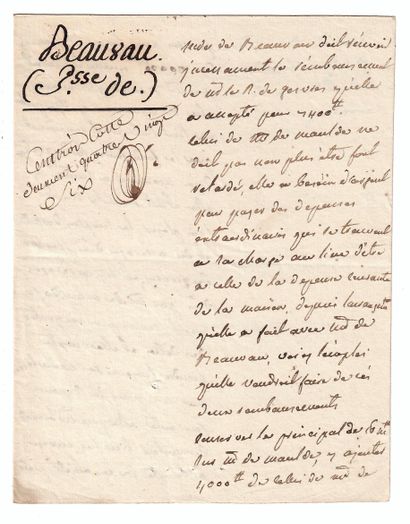 Beauvau.
(P.sse de.)
Cote
quatre vingt
Six
mde de Beauvau doit
incessamment le remboursement
de md la M. de qu'elle
a accepté pour 7400tt.
celui de md de maulde ne
doit pas non plus être fort
retardé, elle a besoin d'argent
pour payer des depenses
extraordinaires qui se trouvent
a sa charge au lieu d'être
a celle de la depense courante
de la maison, depuis
qu'elle a fait avec md de
Beauvau, voici l'emploi
qu'elle voudroit faire de ces
deux remboursements
conserver le principal de 6 m
sur md de maulde, y ajouter
4000tt de celui de md de